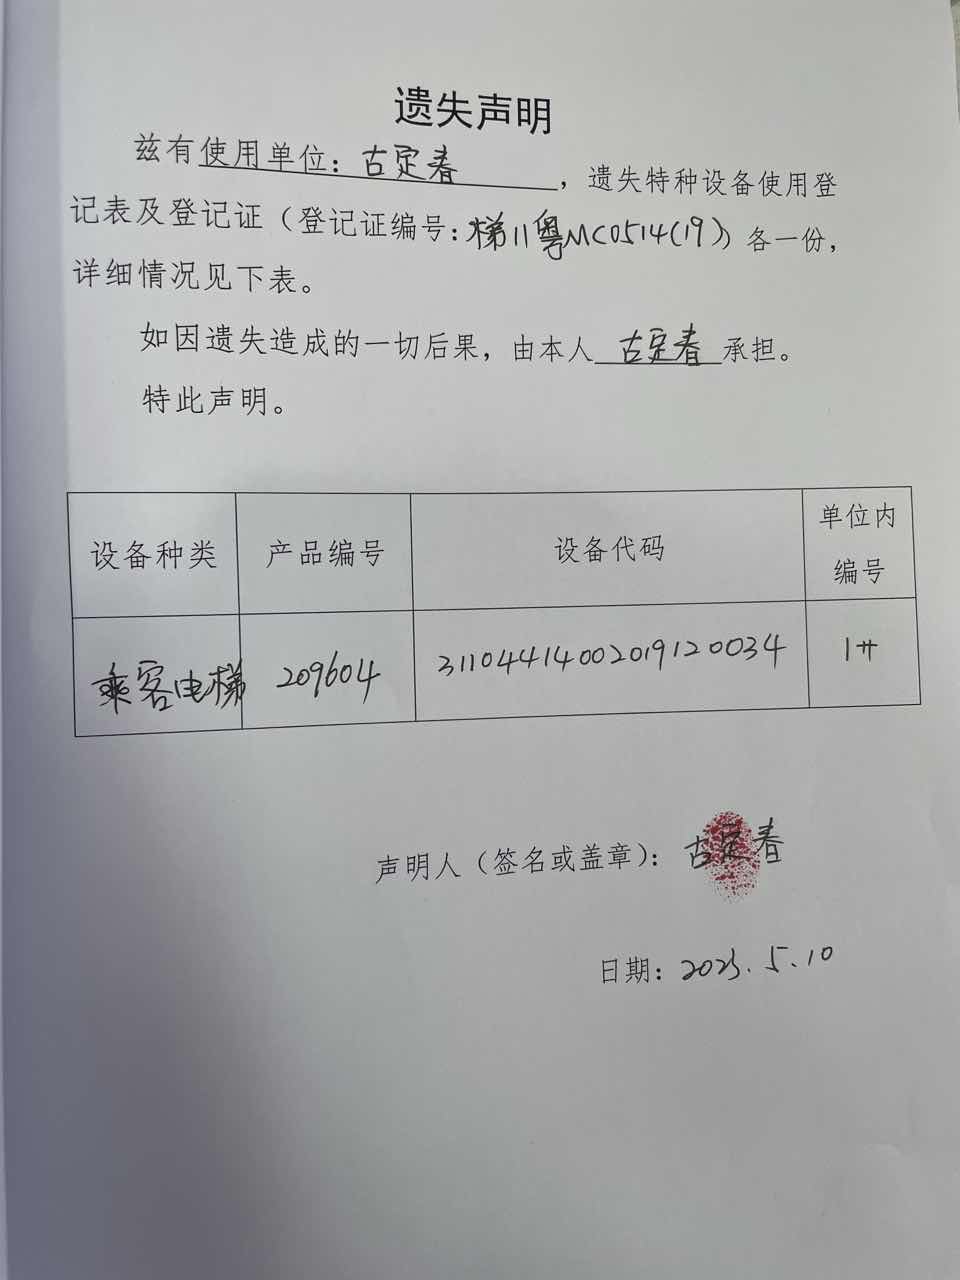 遗失声明
兹有使用单位：古定春，遗失特种设备使用登
记表及登记证（登记证编号：梯11粤MC0514(19)）各一份，
详细情况见下表。
如因遗失造成的一切后果，由本人古定春承担。
特此声明。
设备种类 产品编号 设备代码 单位内
编号
乘客电梯 209604 31104414002019120034 1#
声明人（签名或盖章）：古定春
日期：2023.5.10